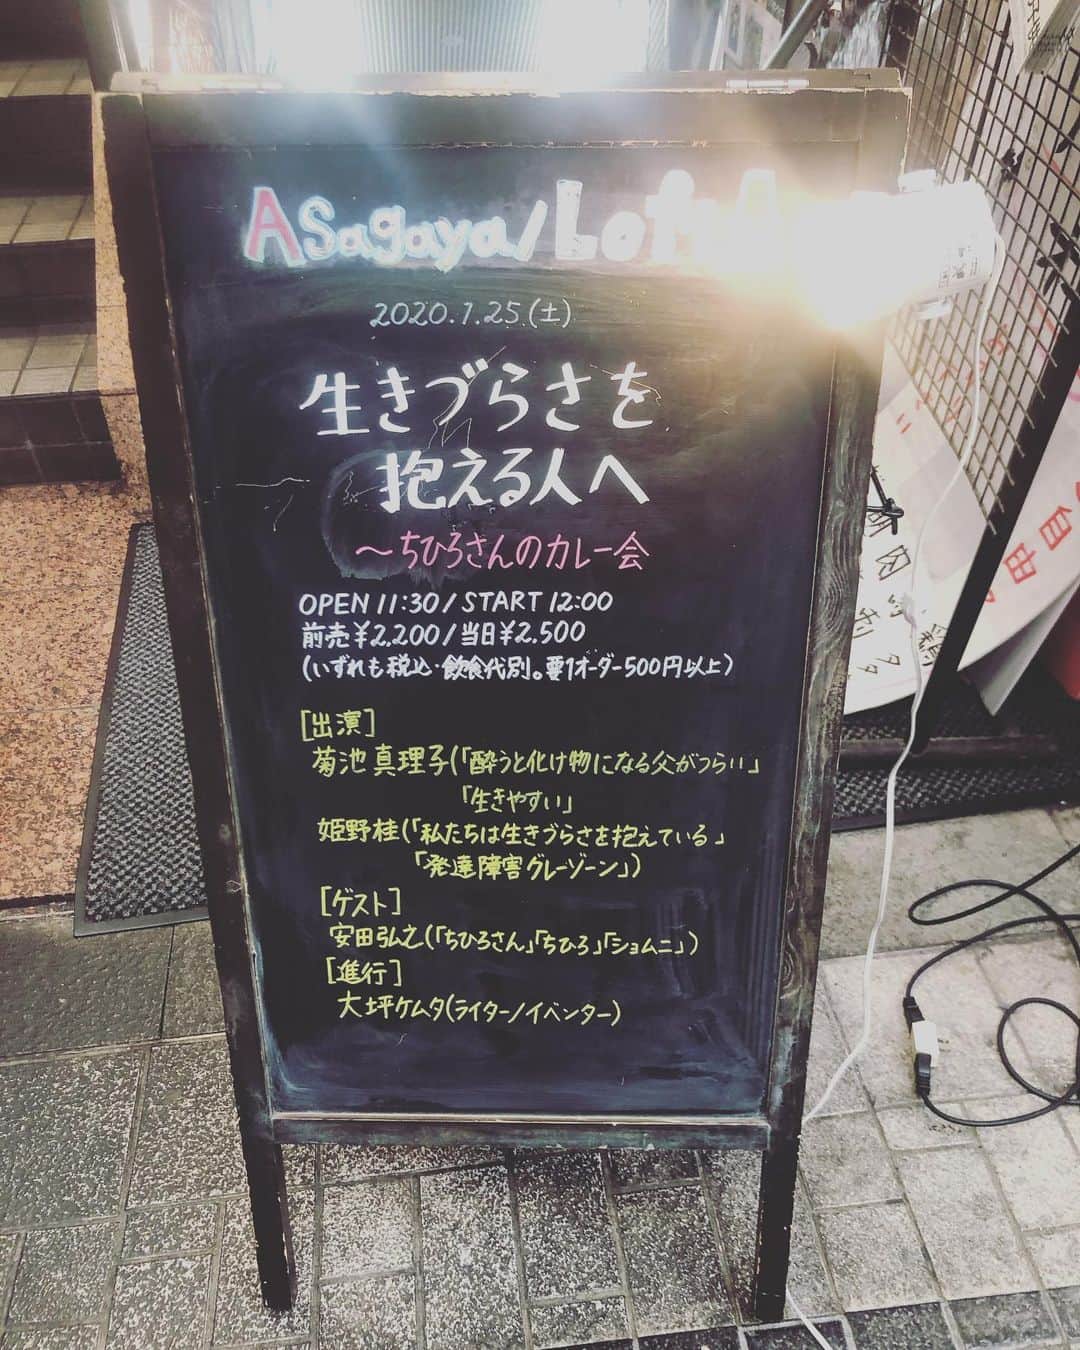 Asagaya/Loft A
2020.1.25(土)
生きづらさを
抱える人へ
〜ちひろさんのカレー会
OPEN 11:30 / START 12:00
前売¥2,200 / 当日¥2,500
(いずれも税込・飲食代別。要1オーダー500円以上)
[出演]
菊池真理子(「酔うと化け物になる父がつらい」
「生きやすい」
姫野桂(「私たちは生きづらさを抱えている」
「発達障害グレーゾーン」)
[ゲスト]
安田弘之(「ちひろさん」「ちひろ」「ショムニ」)
[進行]
大坪ケムタ(ライター/イベンター)
自由